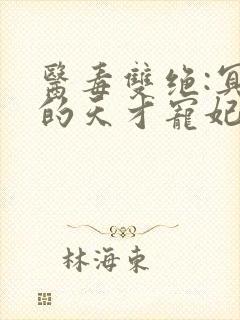 醫毒雙绝:冥
的天才寵妃
林海東